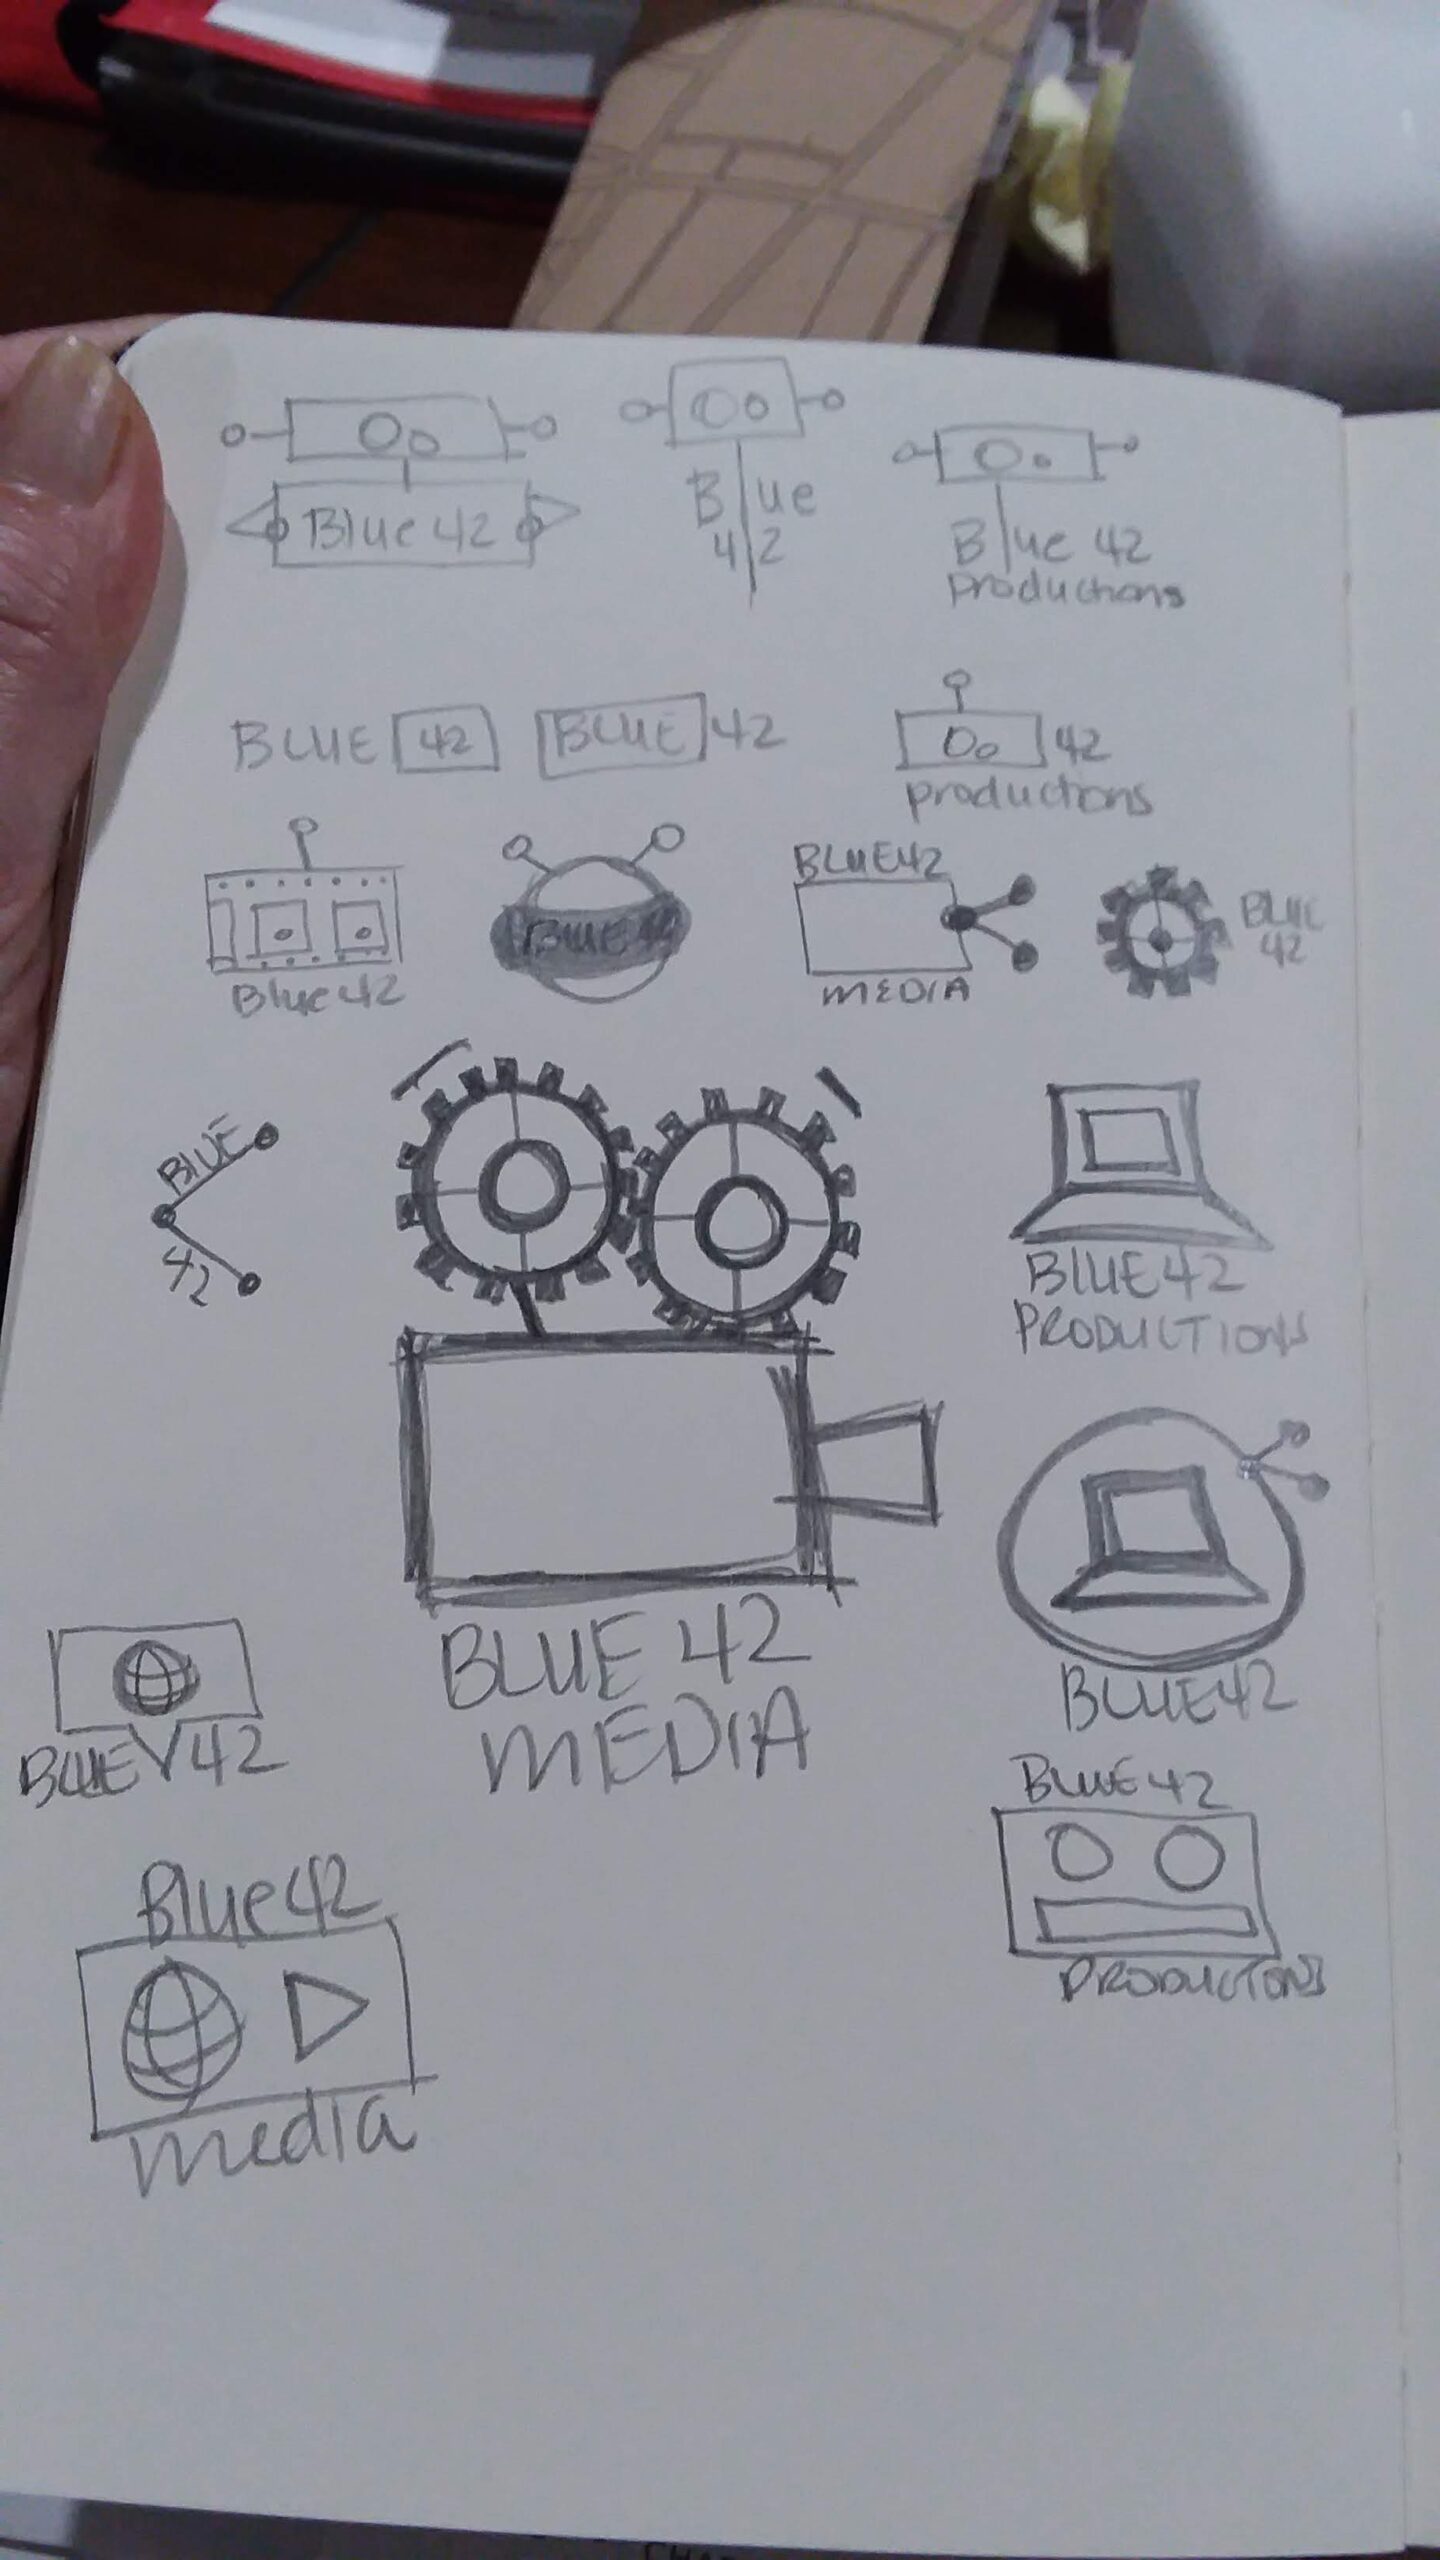 Blue 42
Blue
42
Blue 42
Productions
BLUE 42
BLUE 42
42
productions
Blue 42
BLUE 42
BLUE 42
MEDIA
BLUE
42
BLUE
42
BLUE 42
PRODUCTIONS
BLUE 42
MEDIA
BLUE 42
BLUE 42
BLUE 42
PRODUCTONS
Blue 42
media